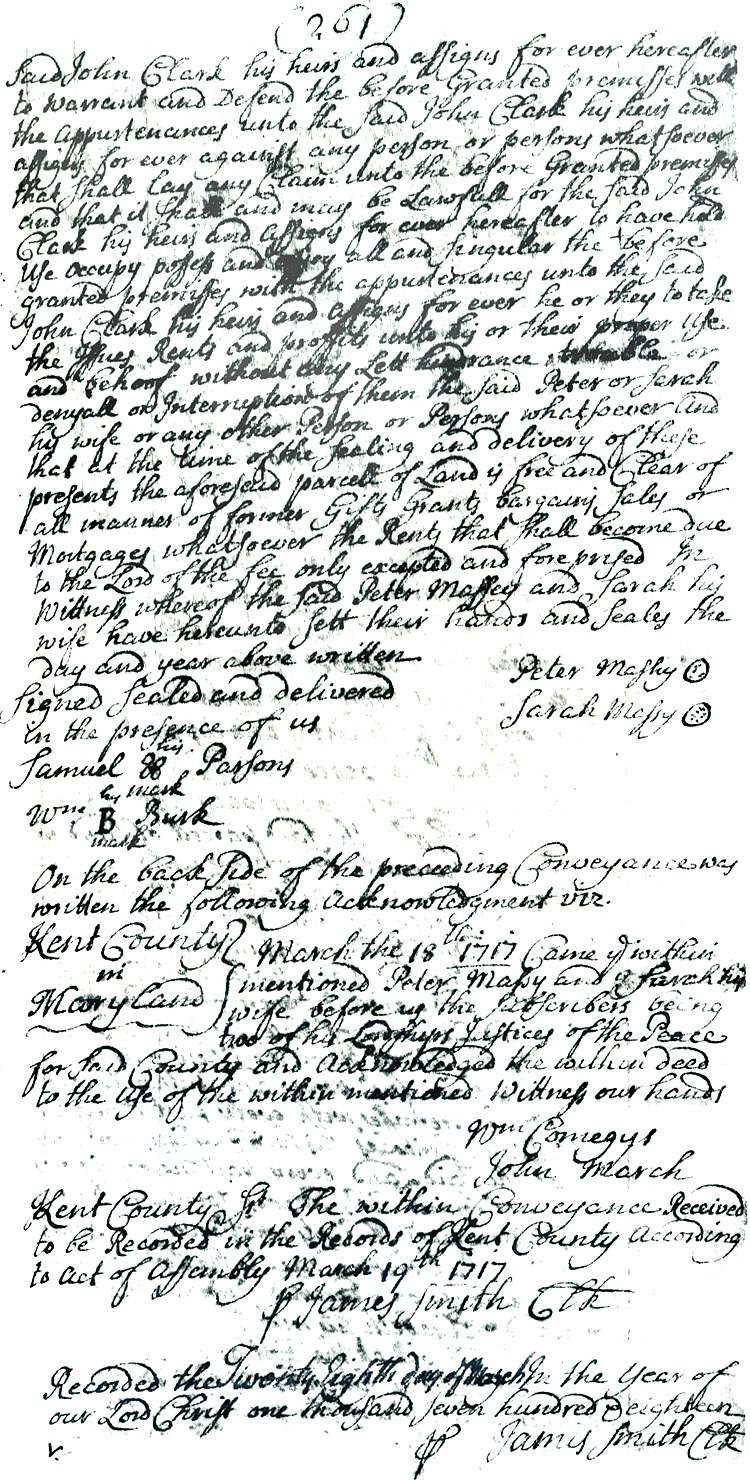 (261)
Said John Clark his heirs and assigns for ever hereafter
to warrant and Defend the before Granted premisses with
the appurtenances unto the said John Clark his heirs and
assigns for ever against any person or persons whatsoever
that shall lay any Claim unto the before Granted premisses
and that it shall and may be Lawfull for the said John
Clark his heirs and assigns for ever hereafter to have hold
Use occupy possess and Enjoy all and singular the before
granted premisses with the appurtenances unto the said
John Clark his heirs and assigns for ever he or they to take
the Issues Rents and proffits unto his or their proper Use
and behoof without any Lett hindrance trouble or
denyall or Interruption of them the said Peter or Sarah
his wife or any other Person or Persons whatsoever And
that at the time of the sealing and delivery of these
presents the aforesaid parcell of Land is free and Clear of
all manner of former Gifts Grants bargains sales or
Mortgages whatsoever the Rents that shall become due
to the Lord of the fee only excepted and foreprised In
Wittness whereof the said Peter Massey and Sarah his
wife have hereunto sett their hands and seales the
day and year above written
Peter Massy
Signed Sealed and delivered
Sarah Massy
in the presence of us
his
Samuel 8 Parsons
his mark
Wm B Burk
mark
On the back side of the preceeding Conveyance was
written the following Acknowledgment viz.
Kent County
in
Maryland
March the 18th 1717 Came ye within
mentioned Peter Massy and Sarah his
wife before us the subscribers being
two of his Lordships Justices of the Peace
for said County and Acknowledged the within deed
to the Use of the within mentioned Wittness our hands
Wm Comegys
John March
Kent County Sst The within Conveyance Received
to be Recorded in the Records of Kent County According
to Act of Assembly March 19th 1717
P James Smith Clk
Recorded the Twenty Eighth day of March In the Year of
our Lord Christ one thousand seven hundred & eighteen
P James Smith Clk